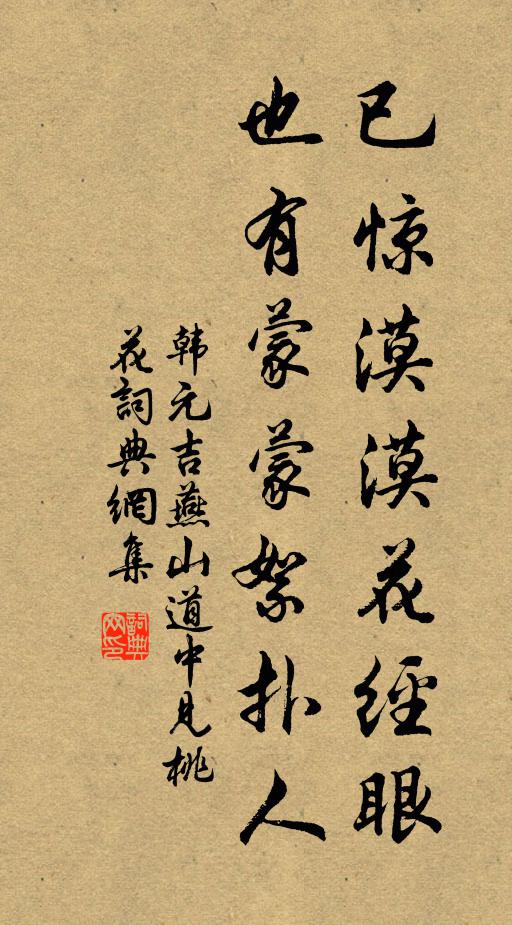 已惊漠漠花经眼
也有蒙蒙絮扑人
韩元吉燕山道中见桃
花詞典網集
詞典網印